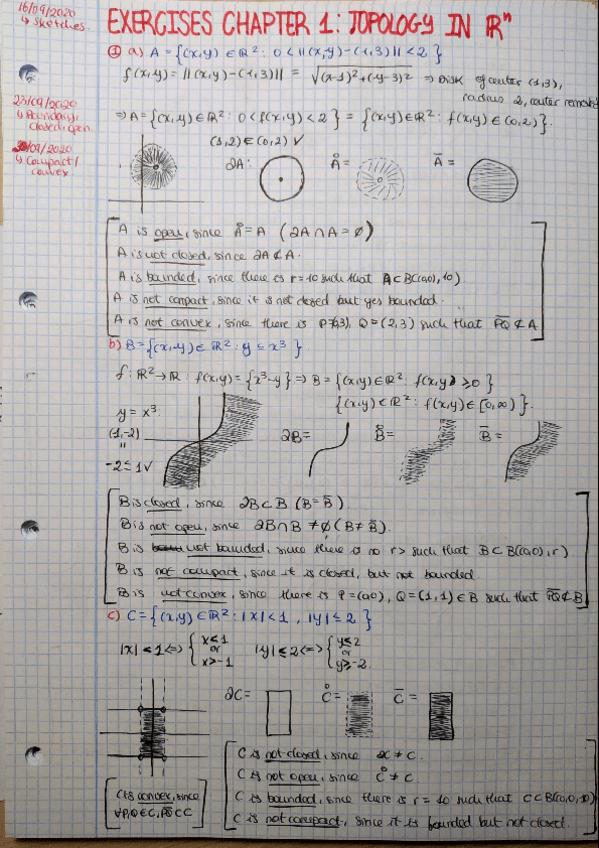 16/09/2020
↳ Sketches.
EXERCISES CHAPTER 1: TOPOLOGY IN ℝⁿ
① a) A = {(x,y) ∈ ℝ²: 0 < ||(x,y)-(1,3)|| < 2 }
f(x,y) = ||(x,y)-(1,3)|| = √(x-1)²+(y-3)² ⇒ Disk of center (1,3),
radius 2, center removed
23/09/2020
↳ Boundary,
closed, open
⇒ A = {(x,y) ∈ ℝ²: 0 < f(x,y) < 2 } = {(x,y) ∈ ℝ²: f(x,y) ∈ (0,2) }.
30/09/2020
↳ Compact/
convex.
(1,2) ∈ (0,2) ✓
∂A: Å = Ā =
A is open, since Å = A (∂A ∩ A = ∅)
A is not closed, since ∂A ⊄ A.
A is bounded, since there is r = 10 such that A ⊂ B((0,0), 10).
A is not compact, since it is not closed but yes bounded.
A is not convex, since there is Q = (2,3) such that P̅Q̅ ⊄ A
b) B = {(x,y) ∈ ℝ²: y ≤ x³ }
f: ℝ² → ℝ : f(x,y) = {x³-y} ⇒ B = {(x,y) ∈ ℝ²: f(x,y) ≥ 0 }
{(x,y) ∈ ℝ²: f(x,y) ∈ [0,∞) }.
y = x³:
(1,-2)
"
-2 ≤ 1 ✓
∂B = B̊ = B̅ =
B is closed, since ∂B ⊂ B (B = B̅).
B is not open, since ∂B ∩ B ≠ ∅ (B ≠ B̊).
B is not bounded, since there is no r > such that B ⊂ B((0,0), r)
B is not compact, since it is closed, but not bounded.
B is not convex, since there is P = (0,0), Q = (1,1) ∈ B such that P̅Q̅ ⊄ B
c) C = {(x,y) ∈ ℝ²: |x| < 1, |y| ≤ 2 }
|x| < 1 ⇔ { x < 1 or x > -1 |y| ≤ 2 ⇔ { y ≤ 2 or y ≥ -2
∂C = C̊ = C̅ =
C is not closed, since ∂C ≠ C.
C is not open, since C̊ ≠ C.
C is bounded, since there is r = 10 such that C ⊂ B((0,0), 10)
C is not compact, since it is bounded but not closed.
C is convex, since
∀P,Q ∈ C, P̅Q̅ ⊂ C